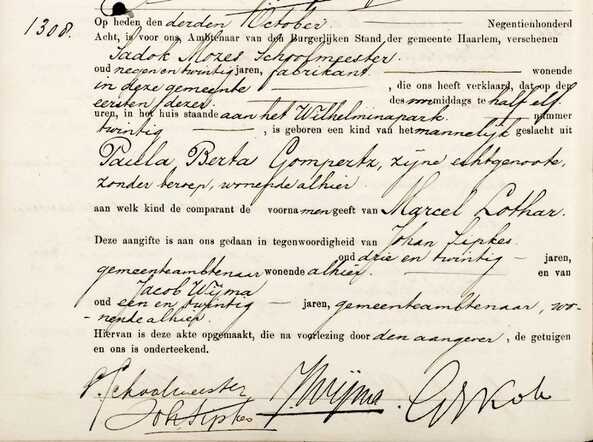 1308.
Op heden den derden October Negentienhonderd
Acht, is voor ons, Ambtenaar van den Burgerlijken Stand der gemeente Haarlem, verschenen
Sadok Mozes Schoolmeester.
oud negen en twintig jaren, fabrikant wonende
in deze gemeente, die ons heeft verklaard, dat op den
eersten dezer des middags te half elf
uren, in het huis staande aan het Wilhelminapark. nummer
twintig, is geboren een kind van het mannelijk geslacht uit
Paula Berta Gompertz, zijne echtgenoote,
zonder beroep, wonende alhier
aan welk kind de comparant de voornamen geeft van Marcel Lothar.
Deze aangifte is aan ons gedaan in tegenwoordigheid van Johan Sipkes
oud drie en twintig jaren,
gemeenteambtenaar wonende alhier. en van
Jacob Wijma
oud een en twintig jaren, gemeenteambtenaar, wo-
nende alhier.
Hiervan is deze akte opgemaakt, die na voorlezing door den aangever, de getuigen
en ons is onderteekend.
Schoolmeester
Joh. Sipkes
J. Wijma.